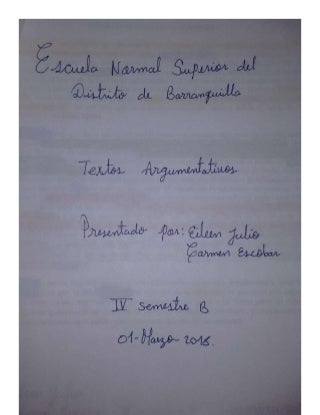 Escuela Normal Superior del
Distrito de Barranquilla
Textos Argumentativos.
Presentado por: Eileen Julio
Carmen Escobar
IV semestre B
01-Marzo-2018.